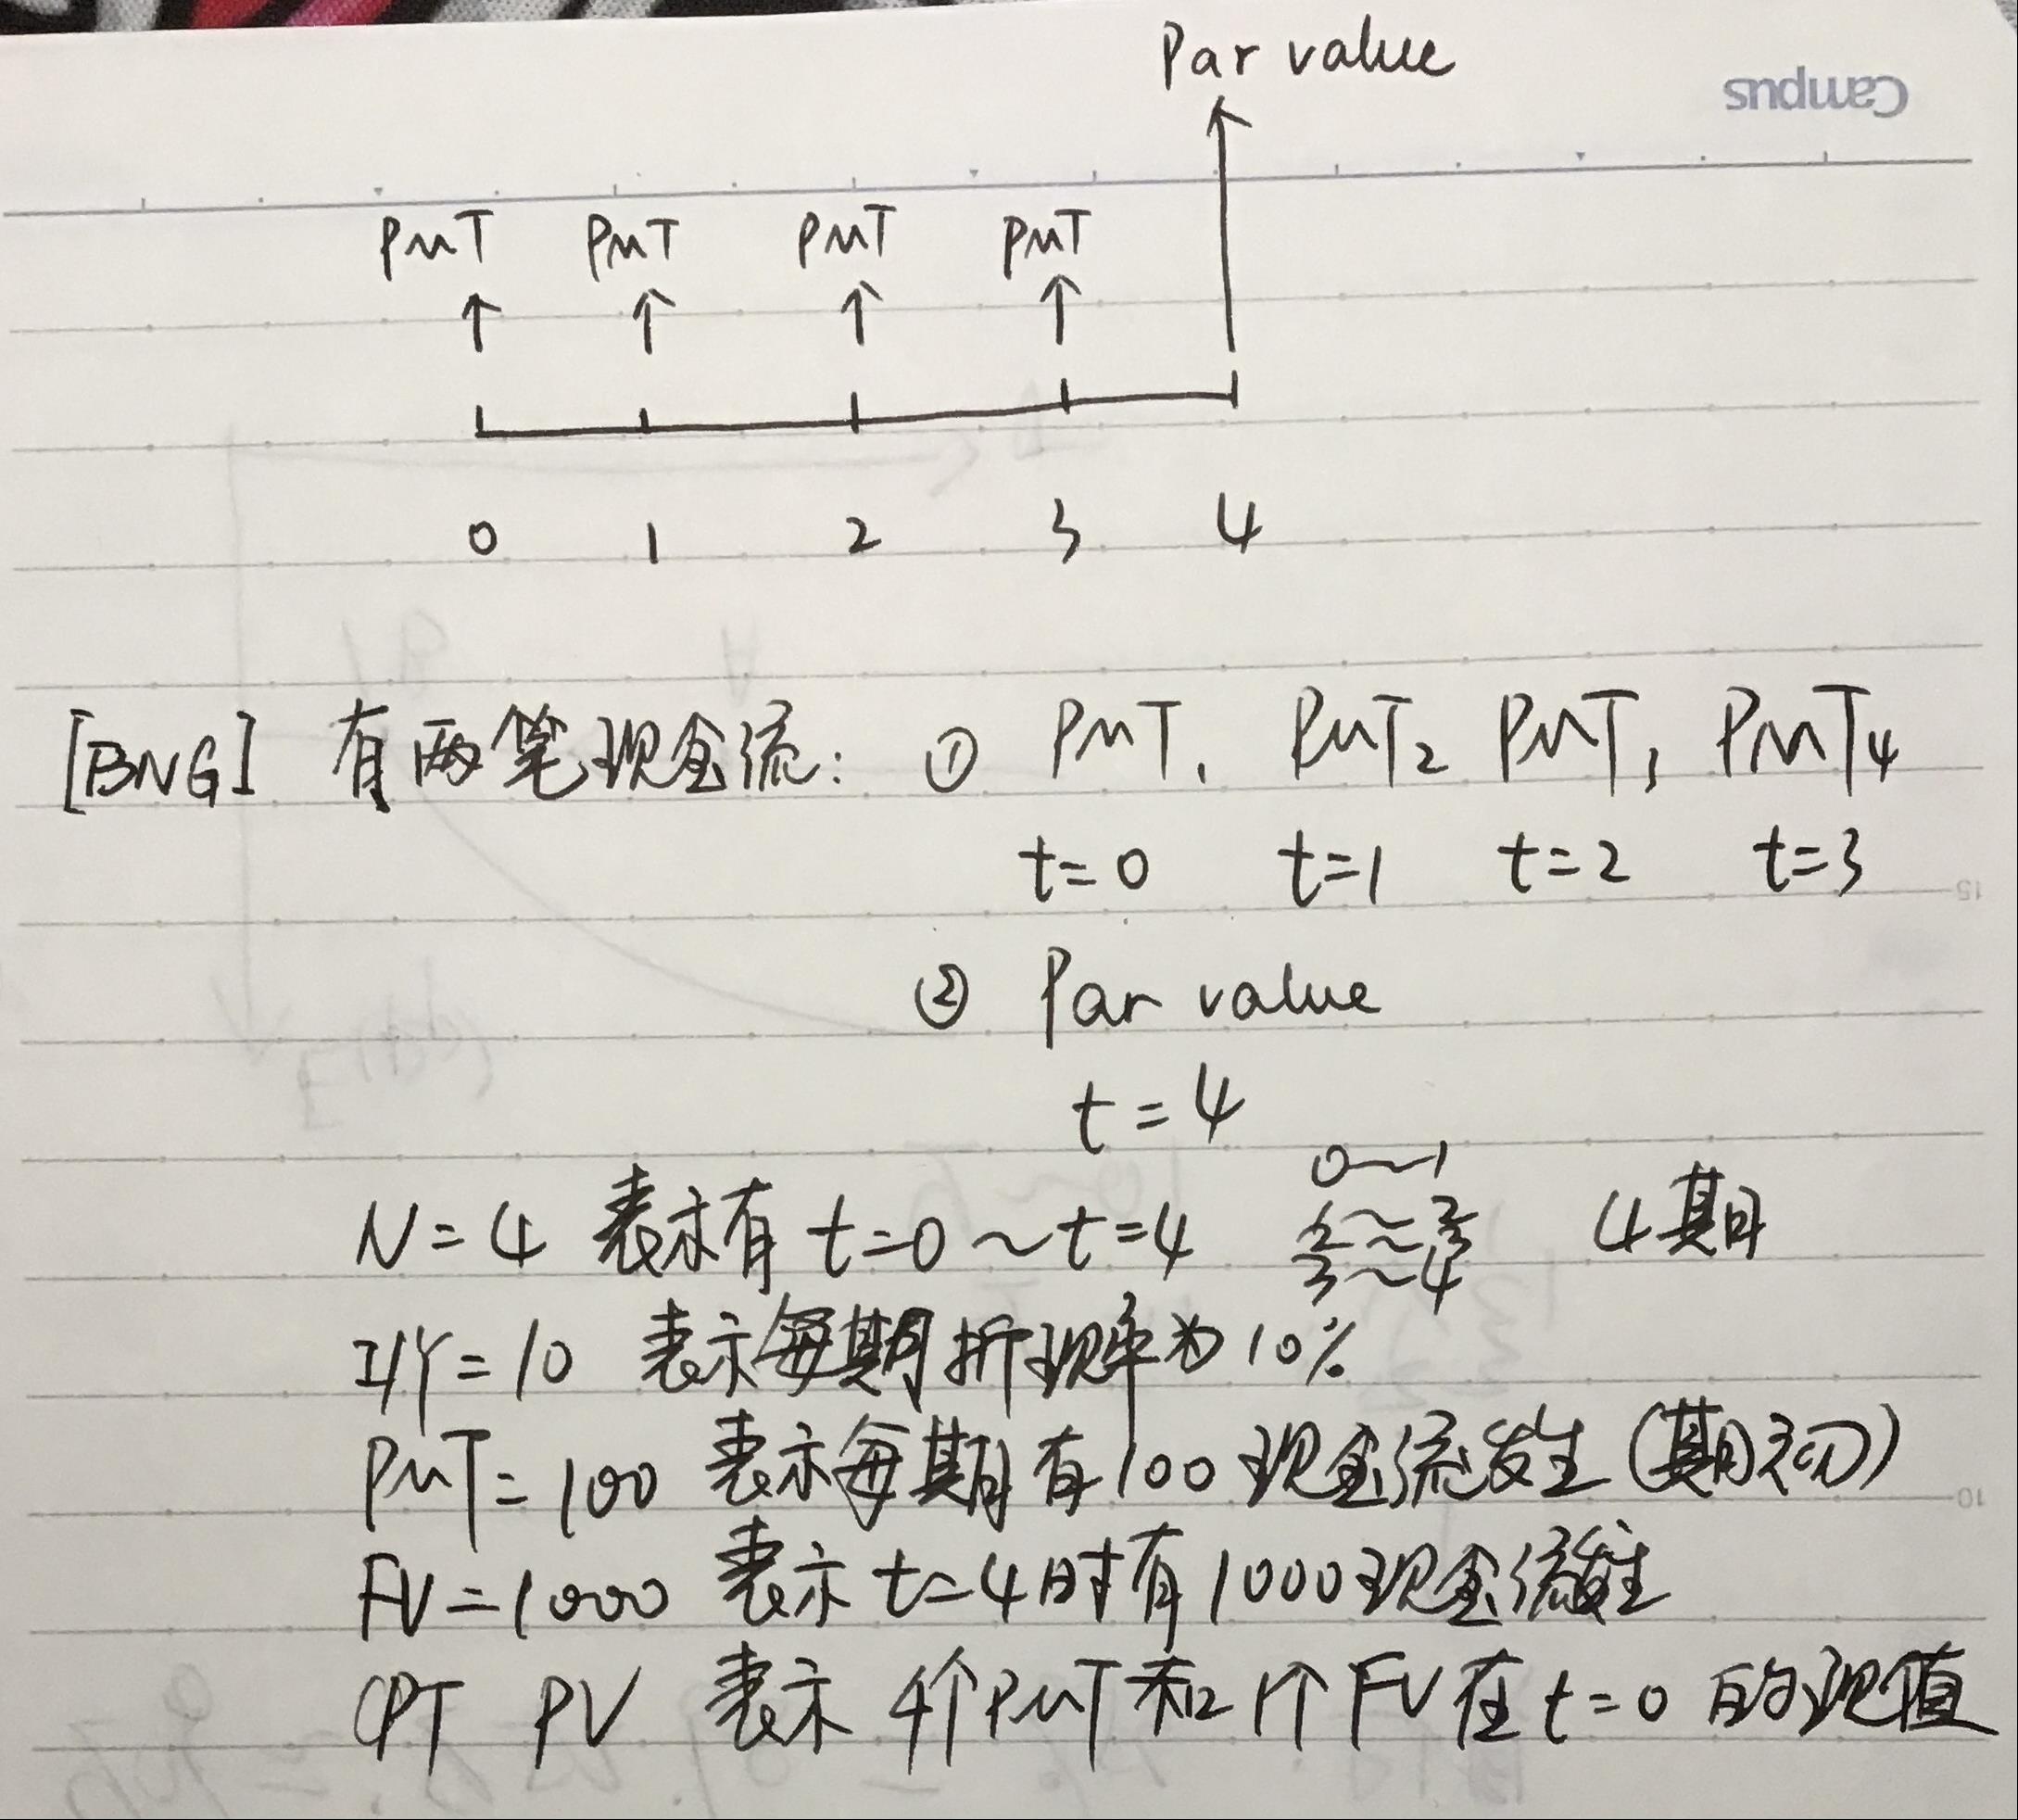 Par value
Campus
PMT PMT PMT PMT
0 1 2 3 4
[BNG] 有两笔现金流: ① PMT₁ PMT₂ PMT₃ PMT₄
t=0 t=1 t=2 t=3
② Par value
t=4
0~1
N=4 表示有 t=0~t=4 4期
3~4
I/Y=10 表示每期折现率为10%
PMT=100 表示每期有100现金流发生(期初)
FV=1000 表示t=4时有1000现金流发生
CPT PV 表示 4个PMT和1个FV在t=0的现值
15
10